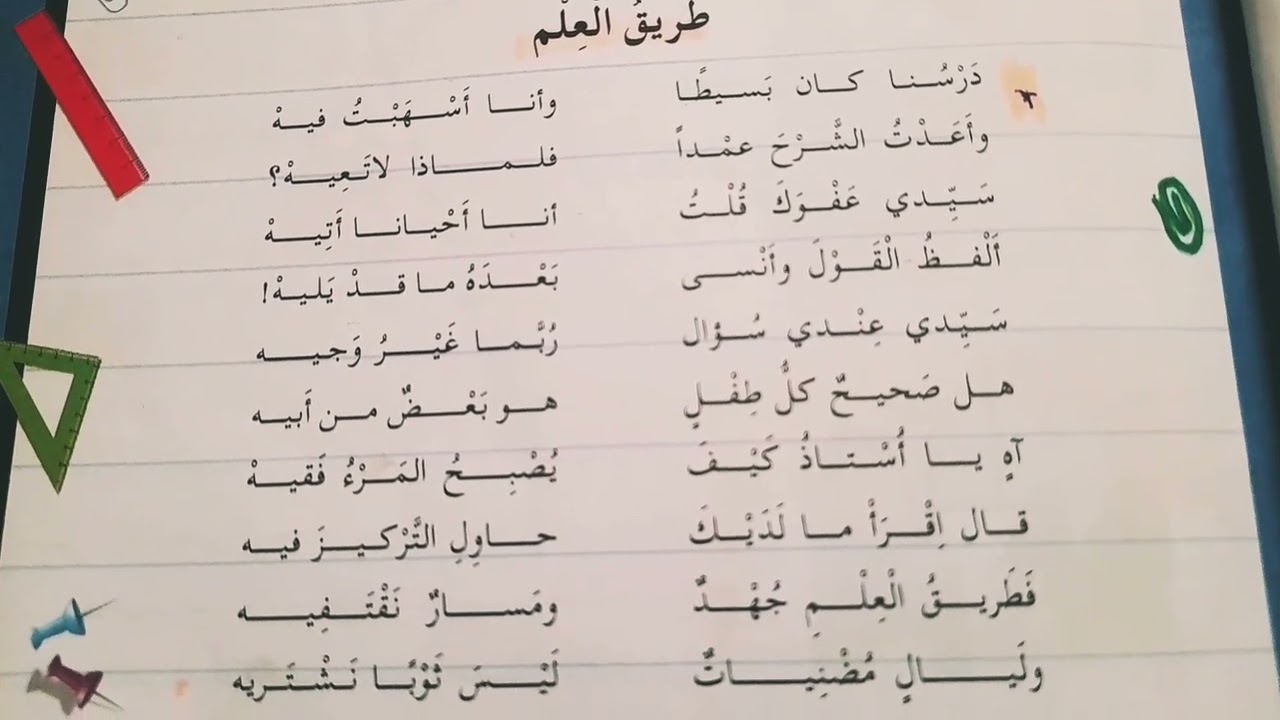 طَريقُ الْعِلْم
دَرْسُنا كان بَسيطًا وأنا أَسْهَبْتُ فيهْ
وأَعَدْتُ الشَّرْحَ عمْداً فلماذا لاتَعِيهْ؟
سَيِّدي عَفْوَكَ قُلْتُ أنا أَحْيانا أَتِيهْ
أَلْفظُ الْقَوْلَ وأَنْسى بَعْدَهُ ما قدْ يَليهْ!
سَيِّدي عِنْدي سُؤال رُبَّما غَيْرُ وَجيه
هل صَحيحٌ كلُّ طِفْلٍ هو بَعْضٌ من أَبيه
آهٍ يا أُسْتاذُ كَيْفَ يُصْبِحُ المَرْءُ فَقيهْ
قال اِقْرَأْ ما لَدَيْكَ حاوِلِ التَّرْكيزَ فيه
فَطَريقُ الْعِلْمِ جُهْدٌ ومَسارٌ نَقْتَفِيه
ولَيالٍ مُضْنِياتٌ لَيْسَ ثَوْبًا نَشْتَريه